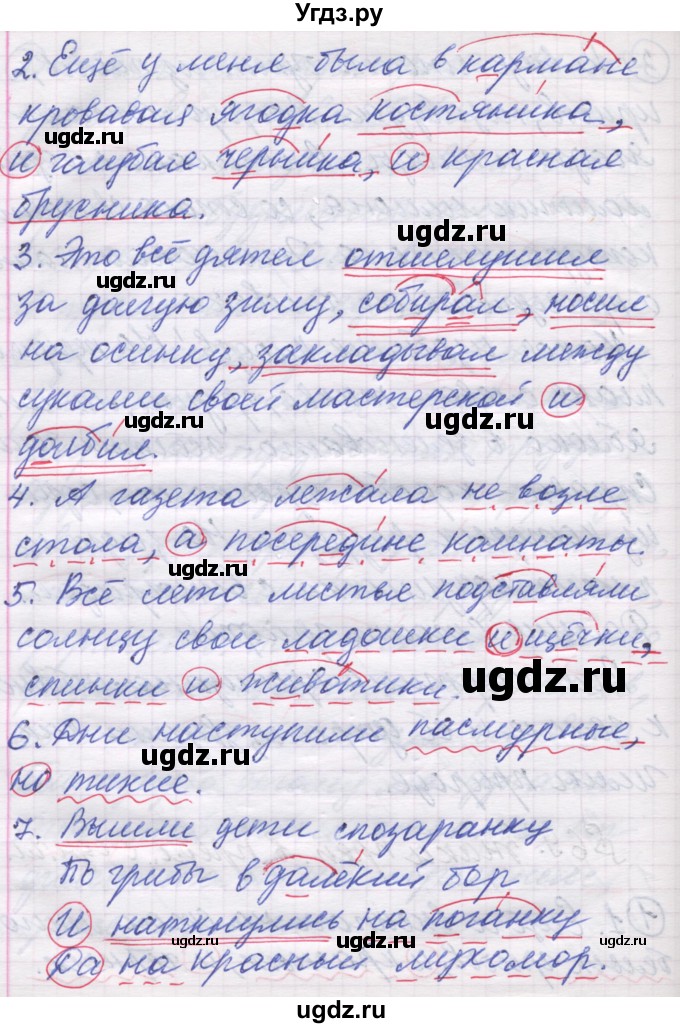 Угдз.ру
2. Ещё у меня была в кармане
кровавая ягодка костяника,
ugdz.ru ugdz.ru
и голубая черника, и красная
ugdz.ru
брусника.
ugdz.ru
3. Это всё дятел отшелушил
за долгую зиму, собирал, носил
ugdz.ru
на осинку, закладывал между
суками своей мастерской и
ugdz.ru
долбил.
ugdz.ru
4. А газета лежала не возле
стола, а посередине комнаты.
ugdz.ru
5. Всё лето листья подставляли
солнцу свои ладошки и щёчки,
ugdz.ru
спинки и животики.
6. Дни наступили пасмурные,
ugdz.ru
но тихие.
7. Вышли дети спозаранку
По грибы в далёкий бор
И наткнулись на поганку
ugdz.ru ugdz.ru
Да на красный мухомор.
ugdz.ru